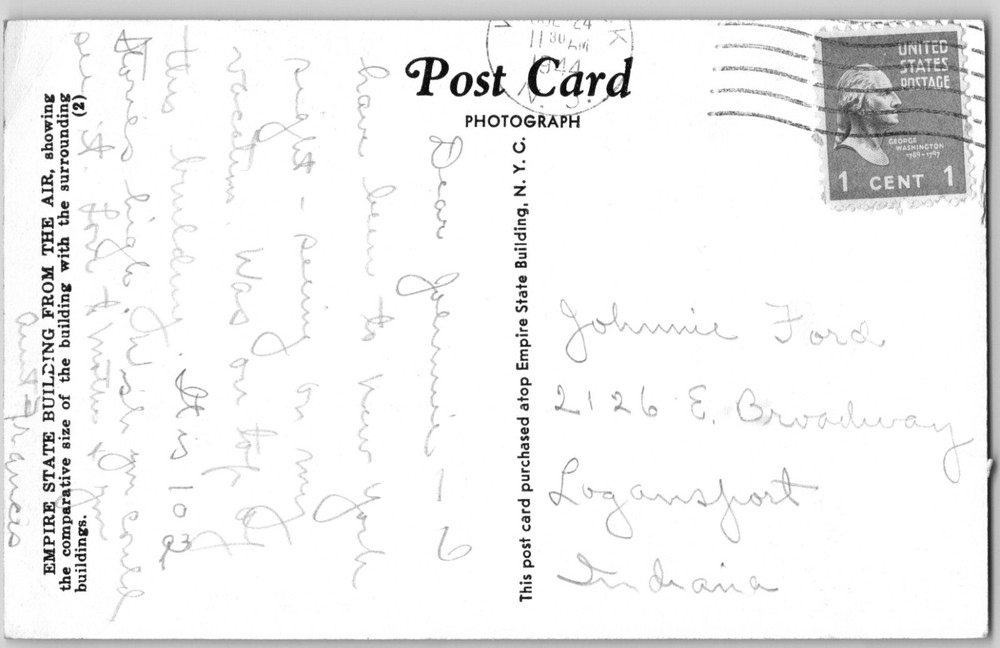 Post Card
PHOTOGRAPH
11 30 AM
1944
N. J.
UNITED
STATES
POSTAGE
GEORGE
WASHINGTON
1789-1797
1 CENT 1
Dear Johnnie - I
have been to New York
sight - seeing on my
vacation. Was on top of
this building. It is 102
stories high. Wish you could
see it. Love to mother & you
Aunt Francis
EMPIRE STATE BUILDING FROM THE AIR, showing
the comparative size of the building with the surrounding
buildings. (2)
This post card purchased atop Empire State Building, N. Y. C.
Johnnie Ford
2126 E. Broadway
Logansport
Indiana